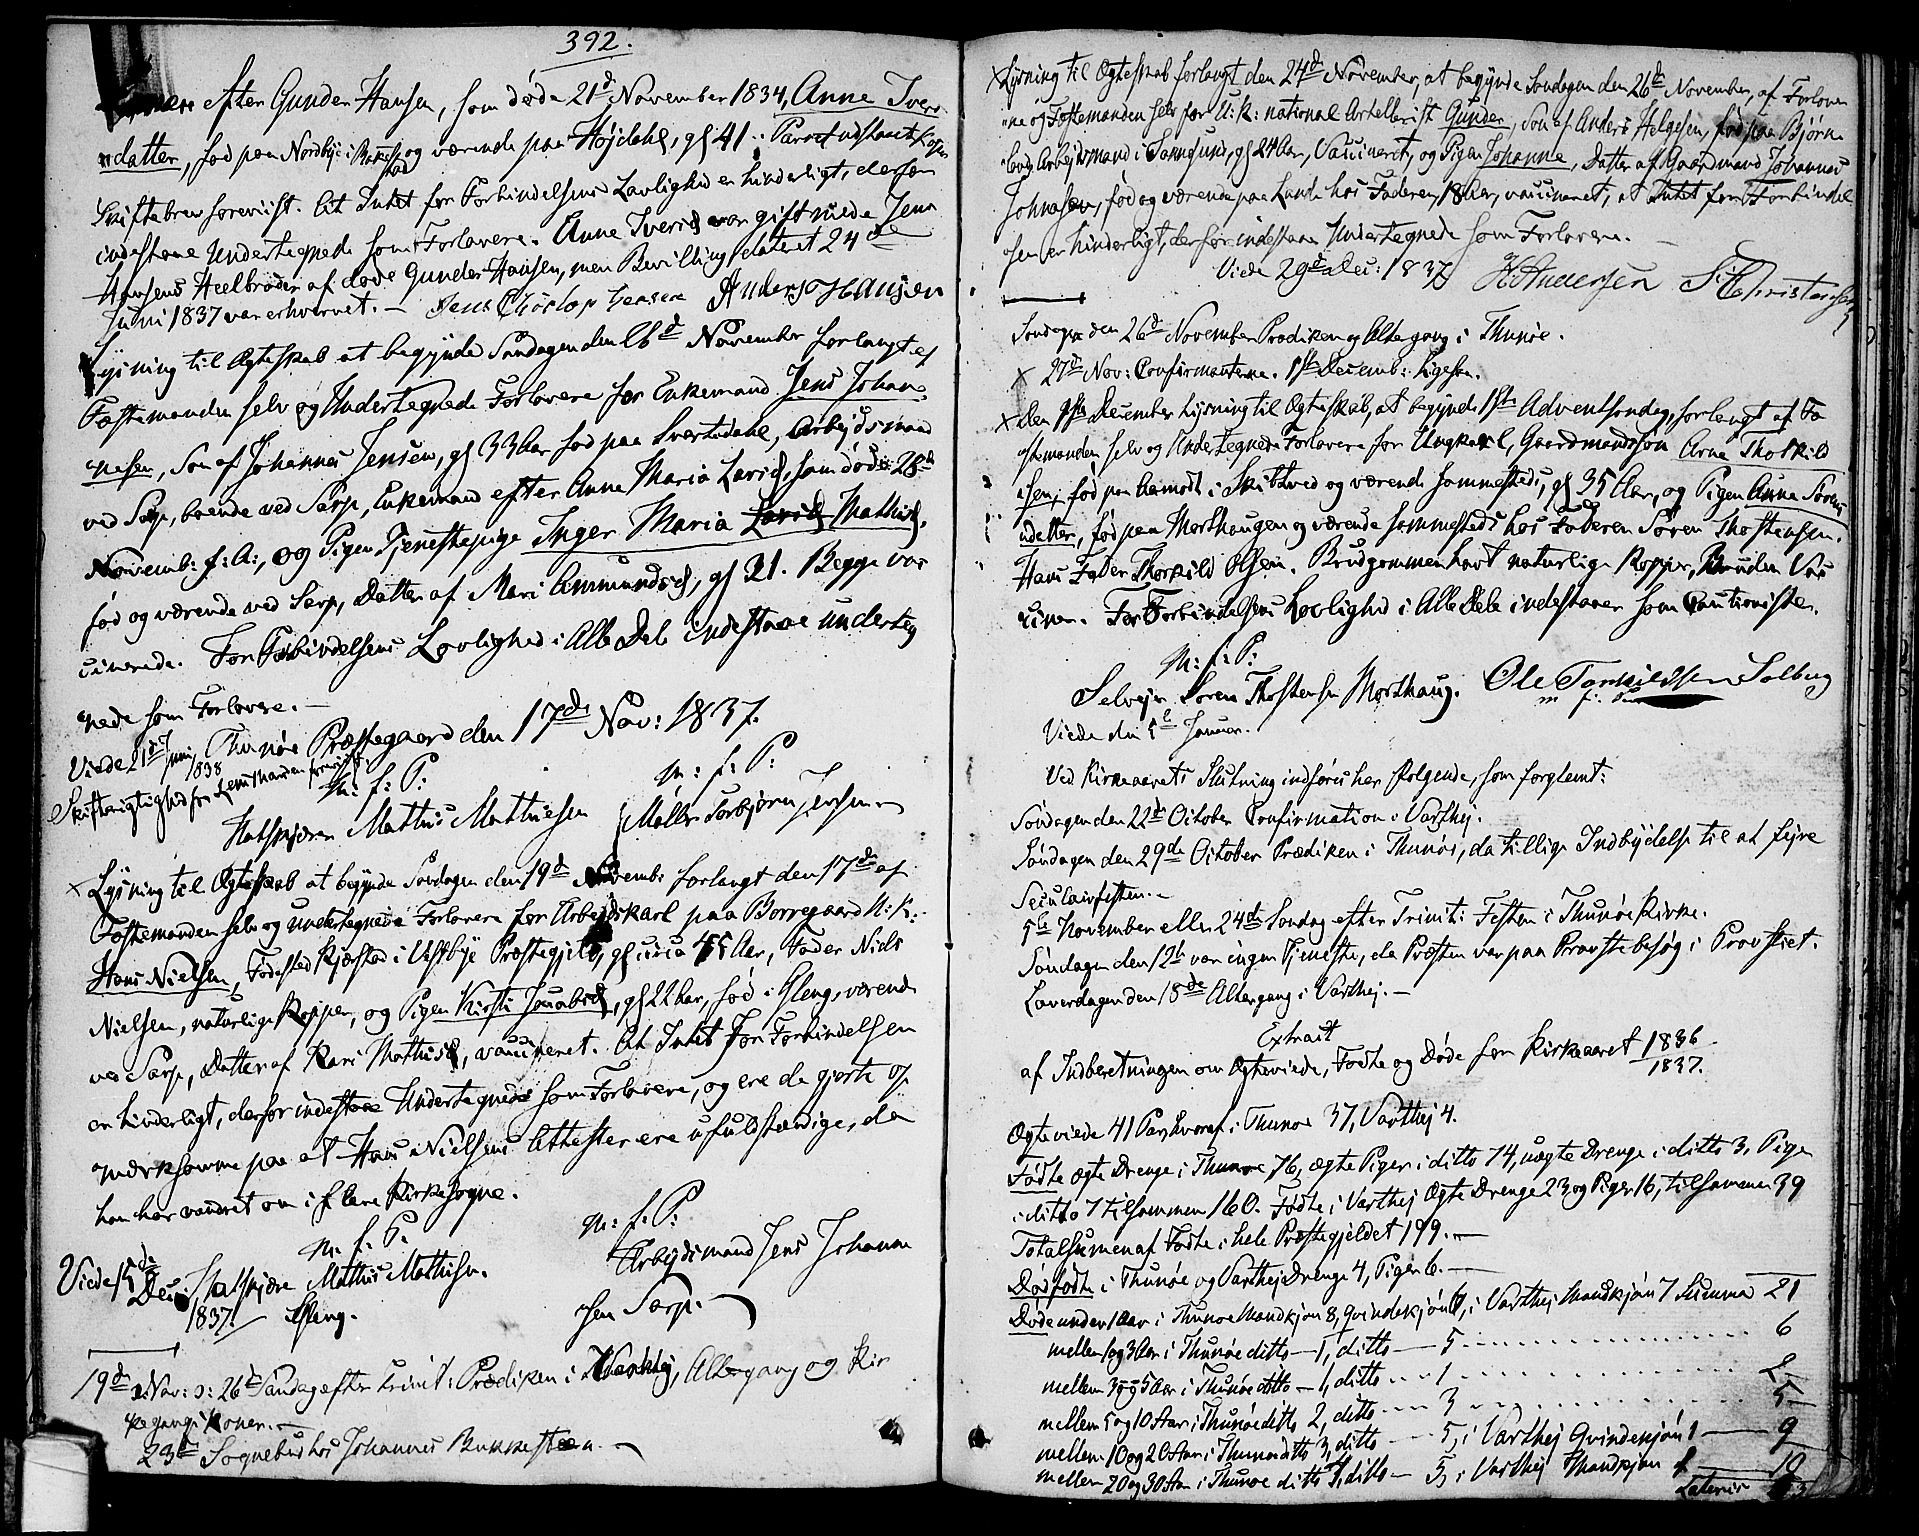 392.
efter Gunder Hansen, som døde 21d November 1834, Anne Ivers
datter, fød paa Nordbye i og værende paa Højdahl, gl 41.
Skiftebrev foreviist. At Intet for Forbindelsens Lovlighed er hinderligt, derfor
indestaae Undertegnede som Forlovere. Anne Iversd var gift mede Jens
Hansens Heelbroder af døde Gunder Hansen, men Bevilling dateret 24de
Juni 1837 var erhvervet. — Jens Hansen Anders Hansen
Lysning til Ægteskab at begynde Søndagen den 26d November forlangt af
Fæstemanden selv og Undertegnede Forlovere for Enkemand Jens Johan-
nesen, Søn af Johannes Jensen, gl 33 Aar fød paa Svartedahl, Arbejdsmand
ved Sarp, boende ved Sarp, Enkemand efter Anne Maria Larsd, som døde 28d
Novemb: f: A:, og Pigen Tjenestepige Inger Maria Larsd Mathisd,
fød og værende ved Sarp, Datter af Mari Amundsd, gl 21. Begge vac
cinerede. For Forbindelsens Lovlighed i Alle Dele indestaae underteg
nede som Forlovere. —
Thunøe Præstegaard den 17de Nov: 1837.
Viede 21d Juni 1838
Skifterigtighed fra Lensmanden foreviist.
m: f: P: m: f: P:
Mathis Mathiesen Møller Torbjørn Jensen
x Lysning til Ægteskab at begynde Søndagen den 19d Novemb: forlangt den 17de af
Fæstemanden selv og undertegnede Forlovere for Arbejdskarl paa Borregaard U: K:
Hans Nielsen, Fødested Kjærstad i Vestbye Præstegjeld, gl circa 45 Aar, Fader Niels
Nielsen, naturlige Kopper, og Pigen Kirsti Jacobsd, gl 22 Aar, fød i Gleng, værende
ved Sarp, Datter af Kari Mathisd, vaccineret. At Intet for Forbindelsen
er hinderligt, derfor indestaae Undertegnede som Forlovere, og ere de gjorte op
mærksomme paa at Hans Nielsens Attester ere ufuldstændige, da
han har vandret om i flere Kirkesogne.
m. f. P. m: f: P:
Viede 15de Dec: 1837 Mathis Mathisen. Arbejdsmand Jens Johanne
Gleng. sen Sarp.
19de Nov: ɔ: 26de Søndag efter Trinit: Prædiken i Varthej, Altergang og Kir
kegangskoner. —
23de Sognebud hos Johannes Bukkesteen. —
x Lysning til Ægteskab forlangt den 24d November, at begynde Søndagen den 26de November, af Forlover
ne og Fæstemanden selv for U: K: national Artellerist Gunder, Søn af Anders Helgesen, fød paa Bjørne
Arbejdsmand i Sannesund, gl 24 Aar, Vaccineret, og Pigen Johanne, Datter af Gaardmand Johannes
Johnsen, fød og værende paa Lande hos Faderen, 18 Aar, vaccineret, at Intet for Forbindel
sen er hinderligt, derfor indestaaer Undertegnede som Forlovere. —
Viede 29de Dec: 1837 H Andersen S Christensen
Søndagen den 26d November Prædiken og Altergang i Thunøe.
x 27de Nov: Confirmanterne. 1ste Decemb: ligesaa.
x den 1ste December Lysning til Ægteskab, at begynde 1ste Adventsøndag, forlangt af Fæ
stemanden selv og Undertegnede Forlovere for Ungkarl, Gaardmandssøn Arne Thorkild
sen, fød paa Aamodt i Skibtved og værende sammesteds, gl 35 Aar, og Pigen Anne Sørens
datter, fød paa Morthaugen og værende sammesteds hos Faderen Søren Thostensen.
Hans Fader Thorkild Olsen. Brudgommen havt naturlige Kopper, Bruden Vac
cinen. For Forbindelsens Lovlighed i Alle Dele indestaaer som Cautionister.
m: f: P:
Selvejer Søren Thostensen Morthaug. Ole Torkildsen Solberg
m f. P
Viede den 5te Januar.
Ved Kirkeaarets Slutning indføres her følgende, som forglemt:
Søndagen den 22de October Confirmation i Varthej.
Søndagen den 29de October Prædiken i Thunøe, da tillige Indbydelse til at fejre
Seculairfesten. —
5te November eller 24de Søndag efter Trinit: Festen i Thunøe Kirke.
Søndagen den 12te var ingen Tjeneste, da Præsten var paa Provstebesøg i Provstiet.
Løverdagen den 18de Altergang i Varthej. —
Extract
af Indberetningen om Ægteviede, Fødte og Døde for Kirkeaaret 1836
1837.
Ægteviede 41 Par, hvoraf i Thunøe 37, Varthej 4.
Fødte ægte Drenge i Thunøe 76, ægte Piger i ditto 74, uægte Drenge i ditto 3, Piger
i ditto 7 tilsammen 160. Fødte i Varthej Ægte Drenge 23 og Piger 16, tilsammen 39
Totalsumen af Fødte i hele Præstegjeldet 199. —
Dødfødte i Thunøe og Varthej Drenge 4, Piger 6. —
Døde under 1 Aar i Thunøe Mandkjøn 8, Qvindekjøn 6, i Varthej Mandkjøn 7 Summa 21
mellem 1 og 3 Aar i Thunøe ditto — 1, ditto — 5 6
mellem 3 og 5 Aar i Thunøe ditto — 1, ditto — 1 2
mellem 5 og 10 Aar i Thunøe ditto 2, ditto — 3 5
mellem 10 og 20 Aar i Thunøe ditto 3, ditto — 5, i Varthej Qvindekjøn 1 — 9
mellem 20 og 30 Aar i Thunøe ditto 4, ditto — 5, i Varthej Mandkjøn 1 — 10
Lateris 53